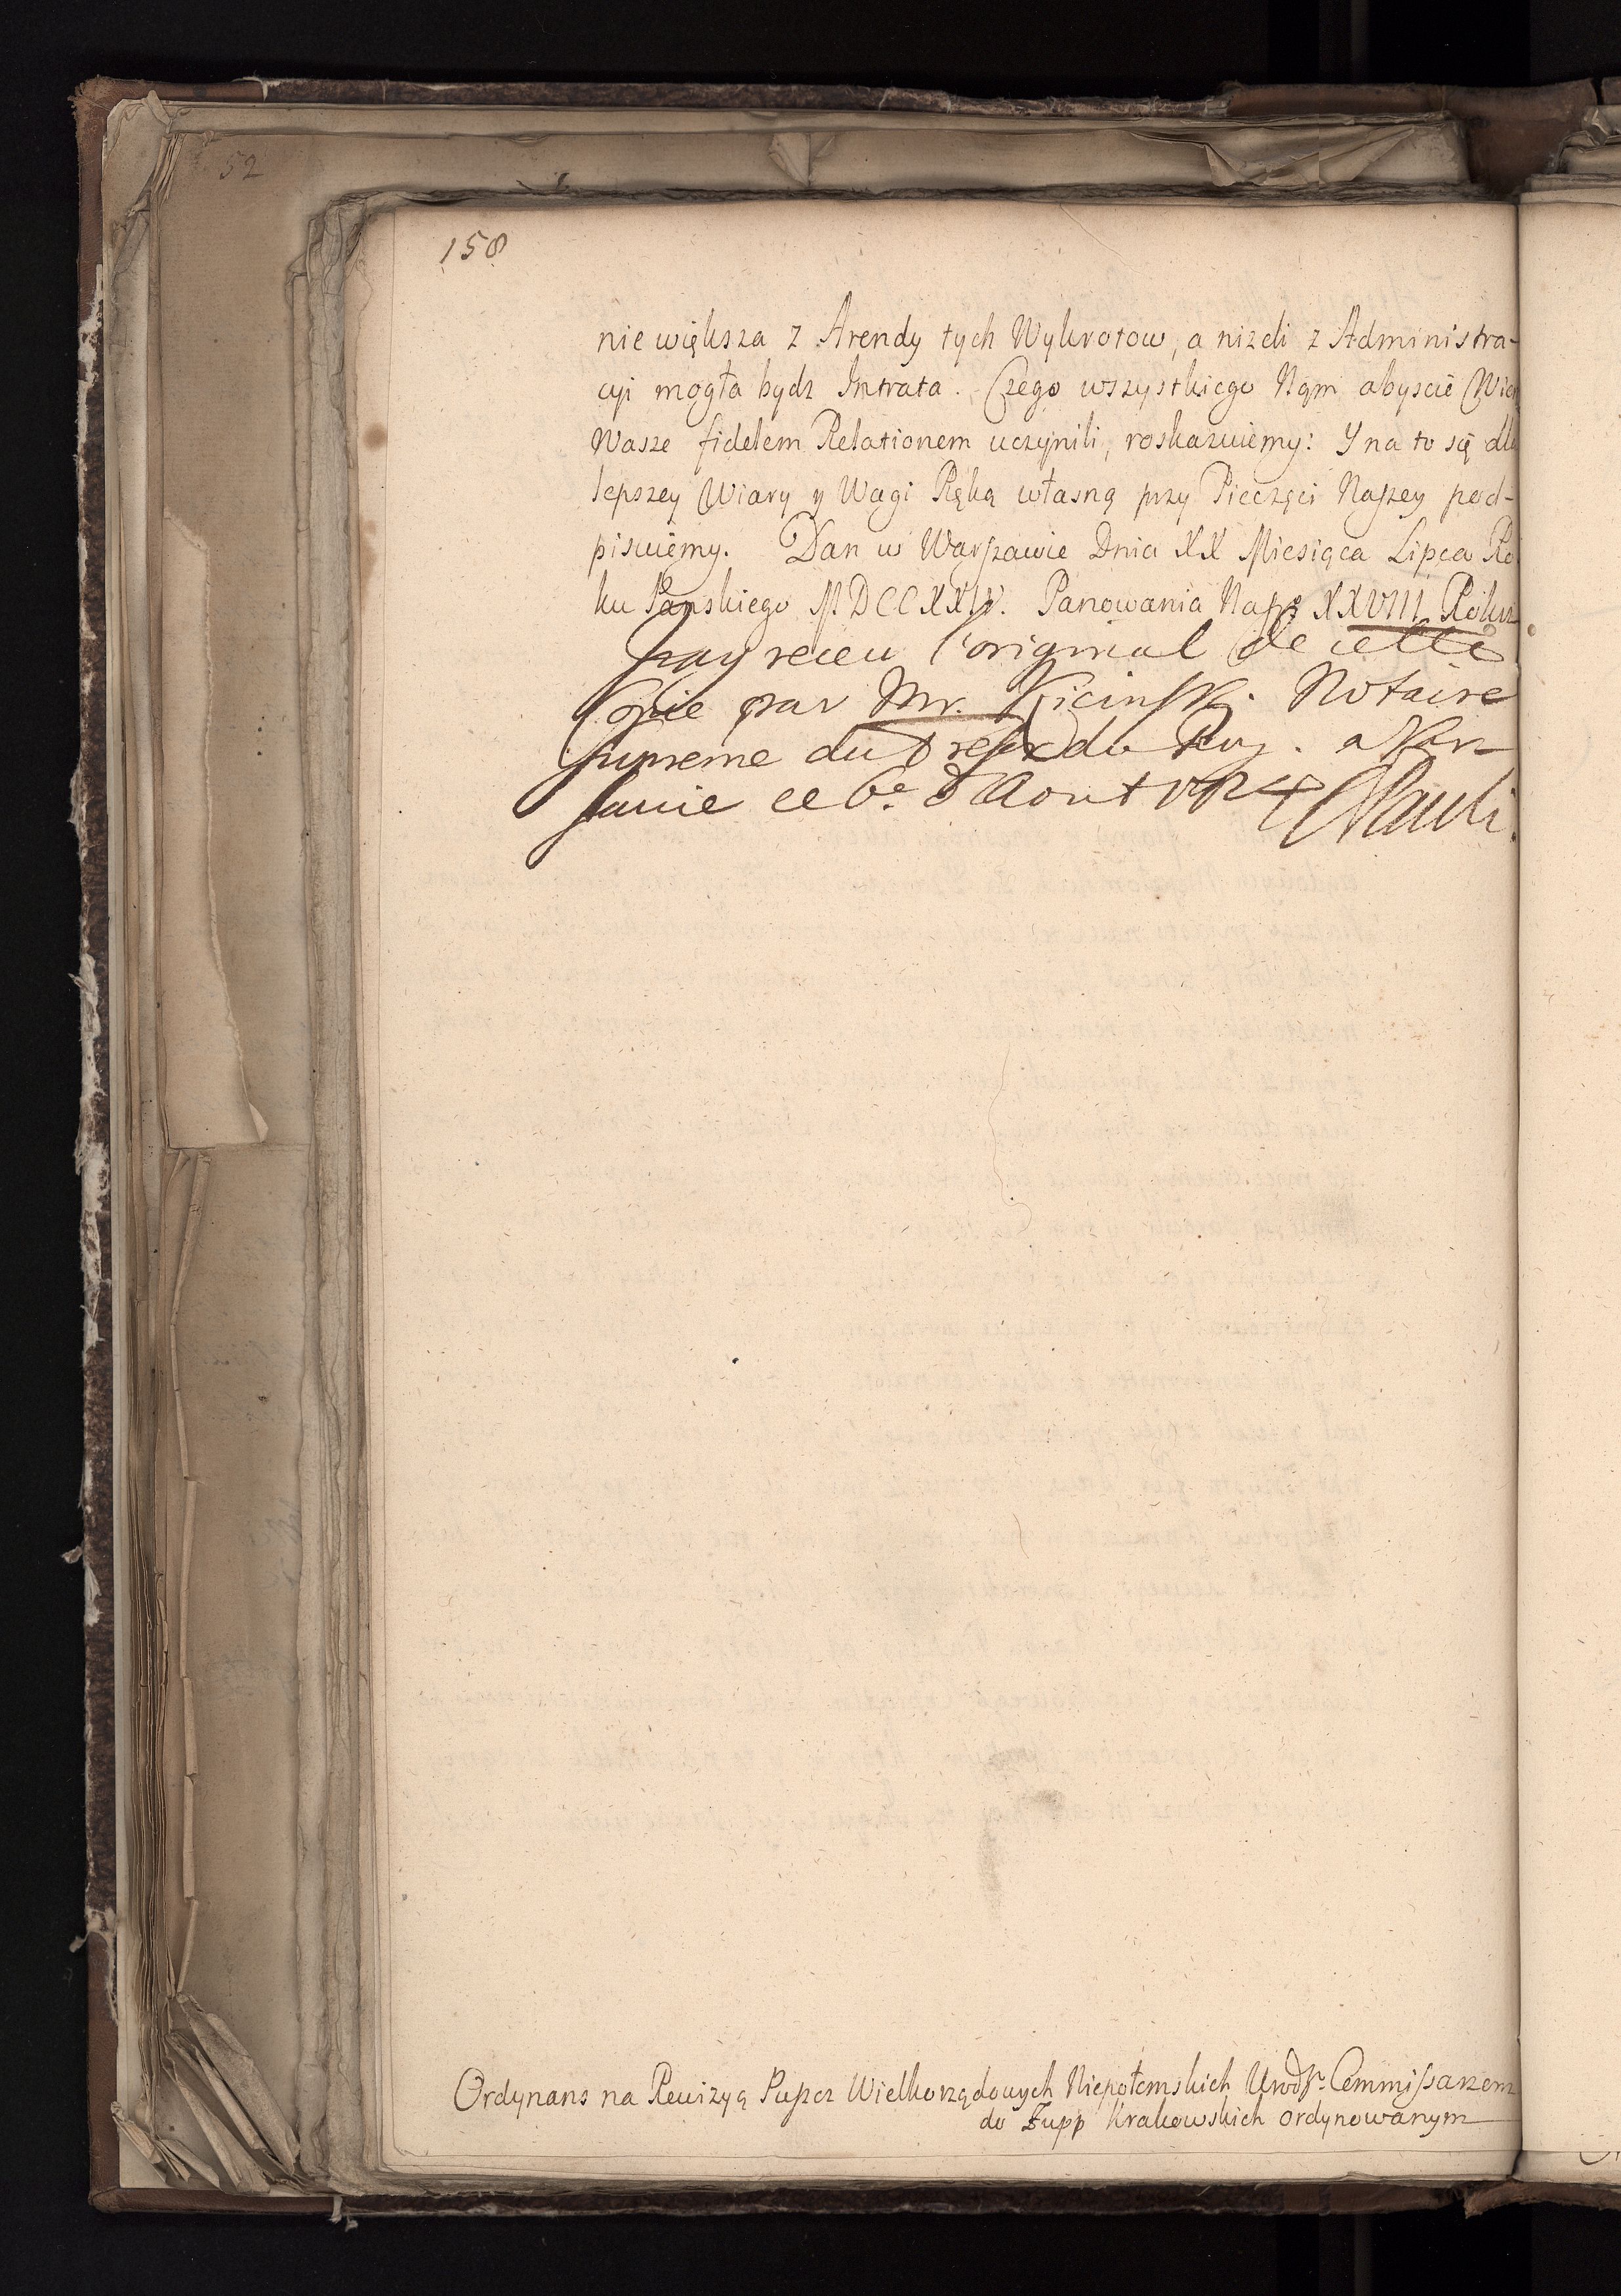 52
158
nie większa z Arendy tych Wykrotow, a niżeli z Administra-
cyi mogła bydz Intrata. Czego wszystkiego Nąm abyscie
Wasze fidelem Relationem uczynili, roskazuiemy: Y na to się dla
lepszey Wiary y Wagi Ręką własną przy Pieczęci Naszey pod-
pisuiemy. Dan w Warszawie Dnia XX Miesiąca Lipca Ro
ku Panskiego MDCCXXIV. Panowania Nasze XXVIII Roku
Jay receu l'original de cette
Copie par Mr. Kicinski. Notaire
supreme du Tresor du Roy. a Var
sauie ce 6e d'Aout 1724 Pauli.
Ordynans na Rewizyą Puszcz Wielkorządowych Niepołomskich Commissarzom
do Zupp Krakowskich ordynowanym